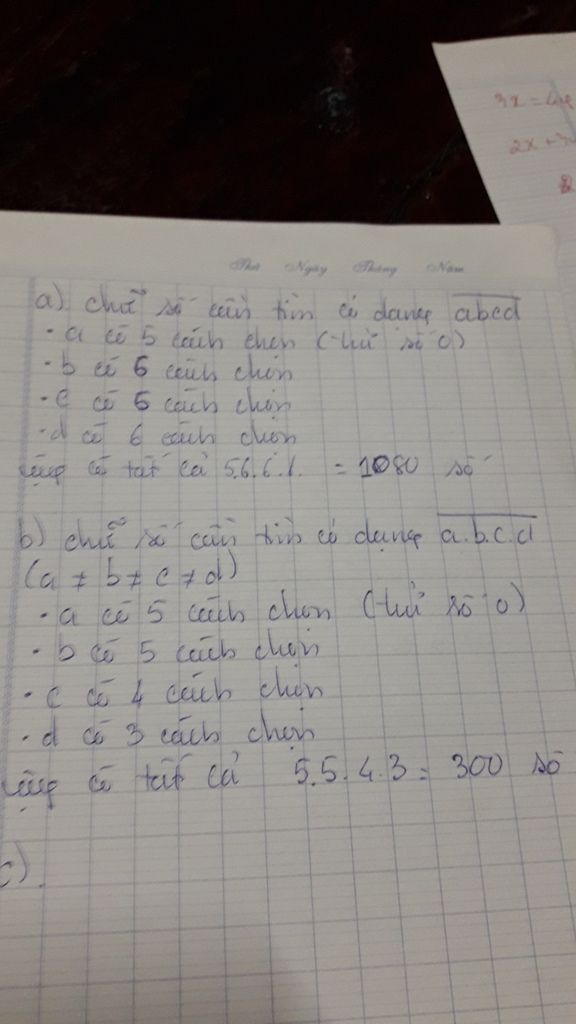 3x = 4y
2x + 3
Thứ Ngày Tháng Năm
a) chữ số cần tìm có dạng abcd
· a có 5 cách chọn (trừ số 0)
· b có 6 cách chọn
· c có 6 cách chọn
· d có 6 cách chọn
Vậy có tất cả 5.6.6.6. = 1080 số
b) chữ số cần tìm có dạng a.b.c.d
(a ≠ b ≠ c ≠ d)
· a có 5 cách chọn (trừ số 0)
· b có 5 cách chọn
· c có 4 cách chọn
· d có 3 cách chọn
Vậy có tất cả 5.5.4.3 = 300 số
c).